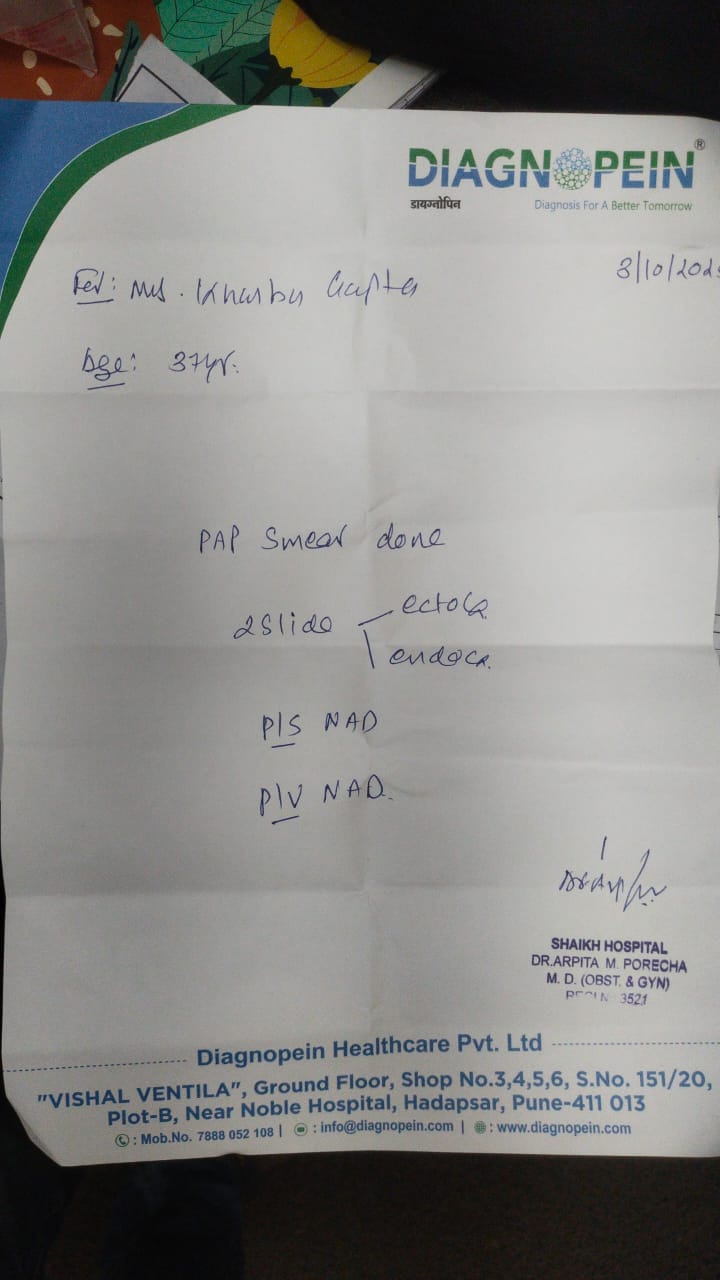 DIAGNOPEIN®
डायग्नोपिन Diagnosis For A Better Tomorrow
3/10/202
Mrs. Khusbu Gupta
Age: 37yr.
PAP Smear done
2 Slide ectocx
endocx.
P/S NAD
P/V NAD.
SHAIKH HOSPITAL
DR.ARPITA M. PORECHA
M. D. (OBST. & GYN)
3521
Diagnopein Healthcare Pvt. Ltd
"VISHAL VENTILA", Ground Floor, Shop No.3,4,5,6, S.No. 151/20,
Plot-B, Near Noble Hospital, Hadapsar, Pune-411 013
: Mob.No. 7888 052 108 | : info@diagnopein.com | : www.diagnopein.com